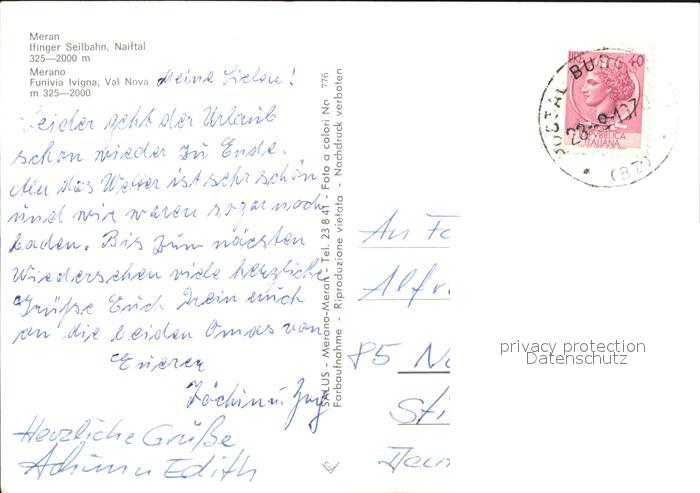 Meran
Ifinger Seilbahn, Naiftal
325—2000 m
Merano
Funivia Ivigna, Val Nova
m 325—2000
Meine Lieben!
Leider geht der Urlaub
schon wieder zu Ende.
das Wetter ist sehr schön
und wir waren sogar noch
baden. Bis zum nächsten
Wiedersehen viele herzliche
Grüße Euch Drein auch
an die beiden Omas von
Eueren
Herzliche Grüße
Edith
SALUS - Merano-Meran - Tel. 23 8 41 - Foto a colori No 776
Farbaufnahme - Riproduzione vietata - Nachdruck verboten
40
REPVBBLICA
ITALIANA
(BZ)
An
Alfr
85 N
privacy protection
Datenschutz